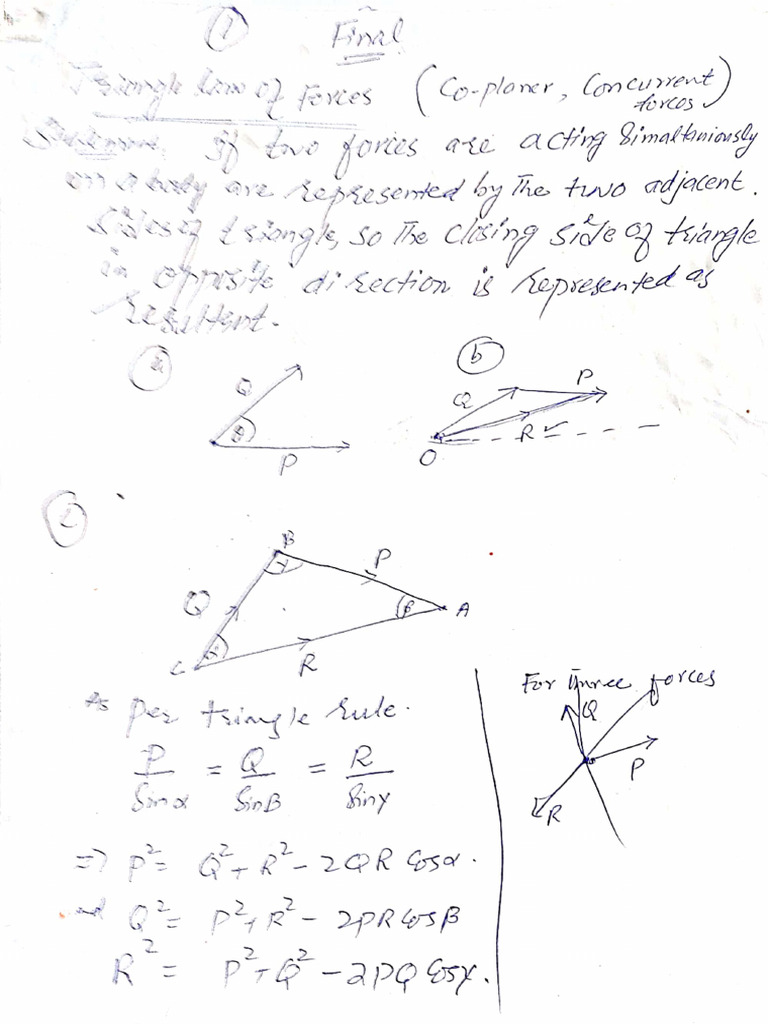 1
Final
Triangle Law of Forces (Co-planer, Concurrent
forces
Statement. If two forces are acting Simaltaniously
on a body are represented by The two adjacent.
Sides of triangle, so The closing side of triangle
in opposite direction is represented as
resultent.
a
b
Q
θ
P
Q
P
R
O
2
B
γ
P
Q
β
A
α
C
R
As per triangle rule.
P/Sinα = Q/SinB = R/Sinγ
=> P² = Q² + R² - 2QR Cosα.
and Q² = P² + R² - 2PR Cosβ
R² = P² + Q² - 2PQ Cosγ.
For three forces
Q
P
R